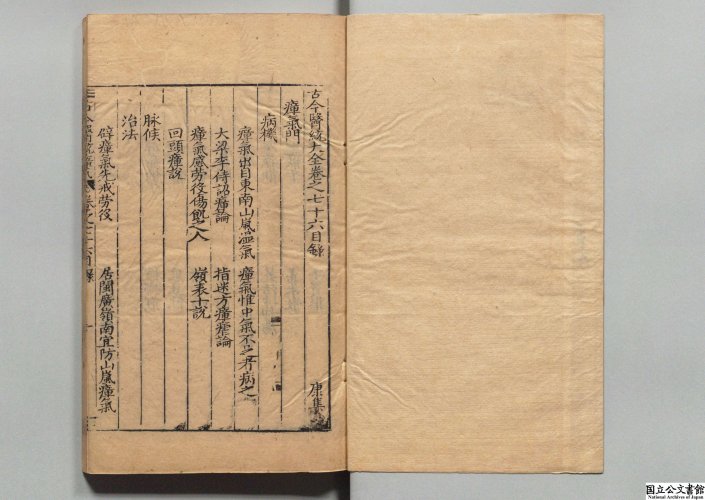 古今醫統大全卷之七十六目錄
康集
瘴氣門
病機
瘴氣出自東南山嵐溫氣
瘴氣惟中氣不足者病之
大梁李侍詔瘴論
指迷方瘴瘧論
瘴氣感勞役傷飢之人
嶺表十說
回頭瘴說
脉候
治法
辟瘴氣先戒勞役
居閩廣嶺南宜防山嵐瘴氣
国立公文書館
National Archives of Japan